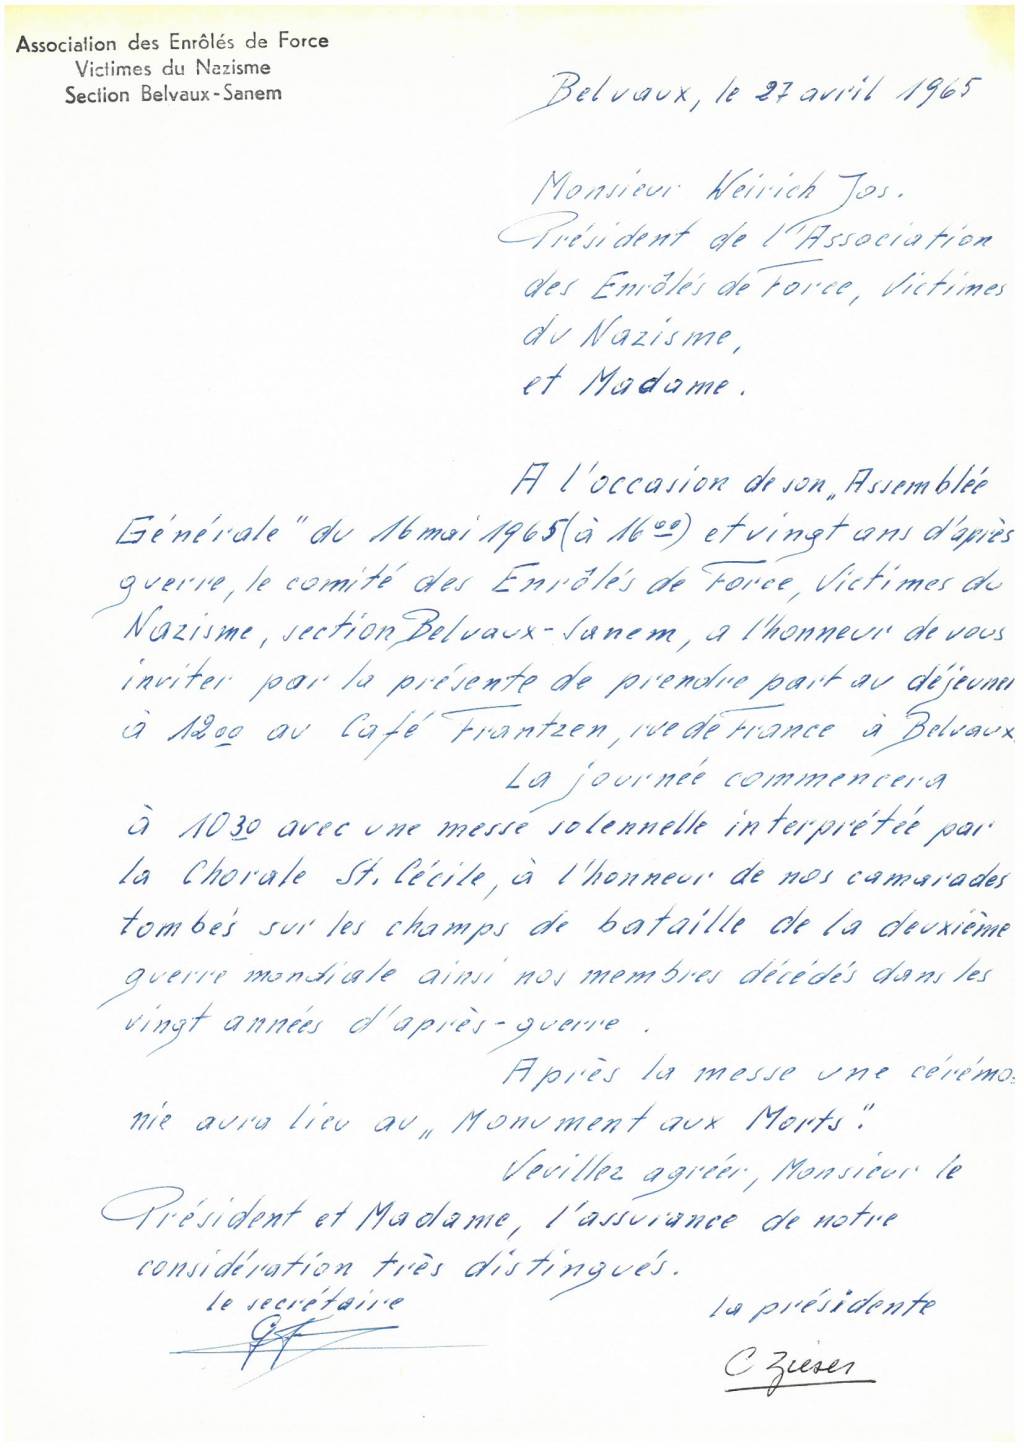 Association des Enrôlés de Force
Victimes du Nazisme
Section Belvaux-Sanem
Belvaux, le 27 avril 1965
Monsieur Weirich Jos.
Président de l'Association
des Enrôlés de Force, Victimes
du Nazisme,
et Madame.
A l'occasion de son „Assemblée
Générale" du 16 mai 1965 (à 16 00) et vingt ans d'après
guerre, le comité des Enrôlés de Force, Victimes du
Nazisme, section Belvaux-Sanem, a l'honneur de vous
inviter par la présente de prendre part au déjeuner
à 12 00 au Café Frantzen, rue de France à Belvaux.
La journée commencera
à 10 30 avec une messe solennelle interprétée par
la Chorale St. Cécile, à l'honneur de nos camarades
tombés sur les champs de bataille de la deuxième
guerre mondiale ainsi nos membres décédés dans les
vingt années d'après-guerre.
Après la messe une cérémo-
nie aura lieu au „Monument aux Morts".
Veuillez agréer, Monsieur le
Président et Madame, l'assurance de notre
considération très distingués.
le secrétaire
la présidente
C Zieser